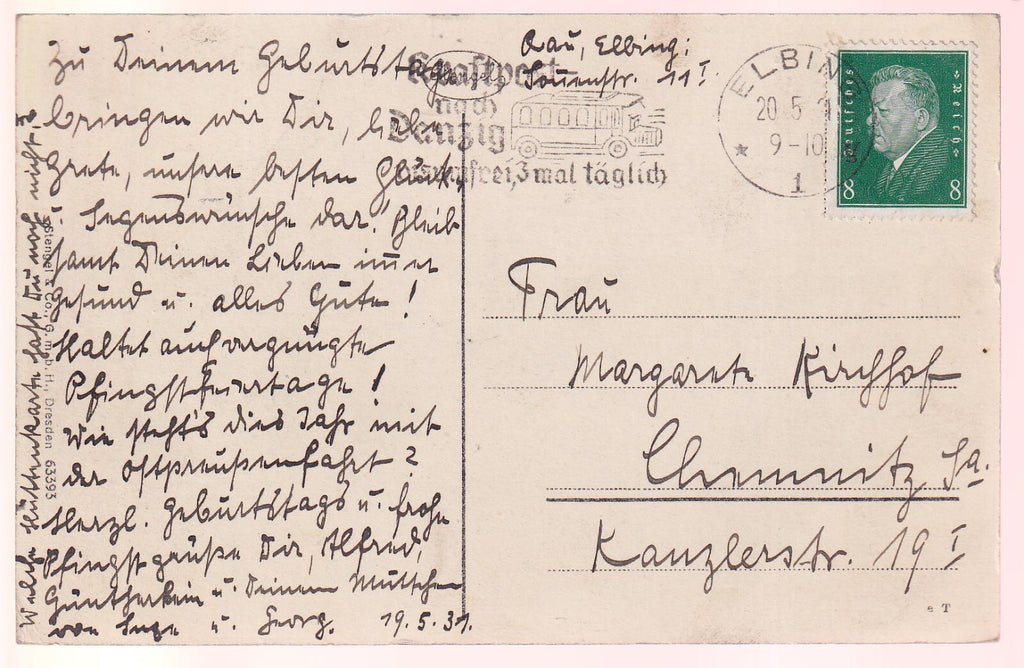 Zu Deinem Geburtstag
bringen wir Dir, liebe
Grete, unsere besten Glück-
u. Segenswünsche dar. Bleib
samt Deinen Lieben immer
gesund u. alles Gute!
Haltet auch vergnügte
Pfingstfeiertage!
Wie steht's dies Jahr mit
der Ostpreußenfahrt?
Herzl. Geburtstags u. frohe
Pfingstgrüße Dir, Alfred,
Güntherlein u. Deinem Muttchen
von Inge u. Georg. 19.5.31.
Welche Künstlerkarte hast Du noch nicht?
Stengel & Co., G.m.b.H., Dresden 63393
Elbing:
11 I
Kraftpost
nach
Danzig
3 mal täglich
ELBING
20.5.31
9-10
1
Deutsches Reich
8 8
Frau
Margarete Kirchhof
Chemnitz Sa.
Kanzlerstr. 19 I
e T